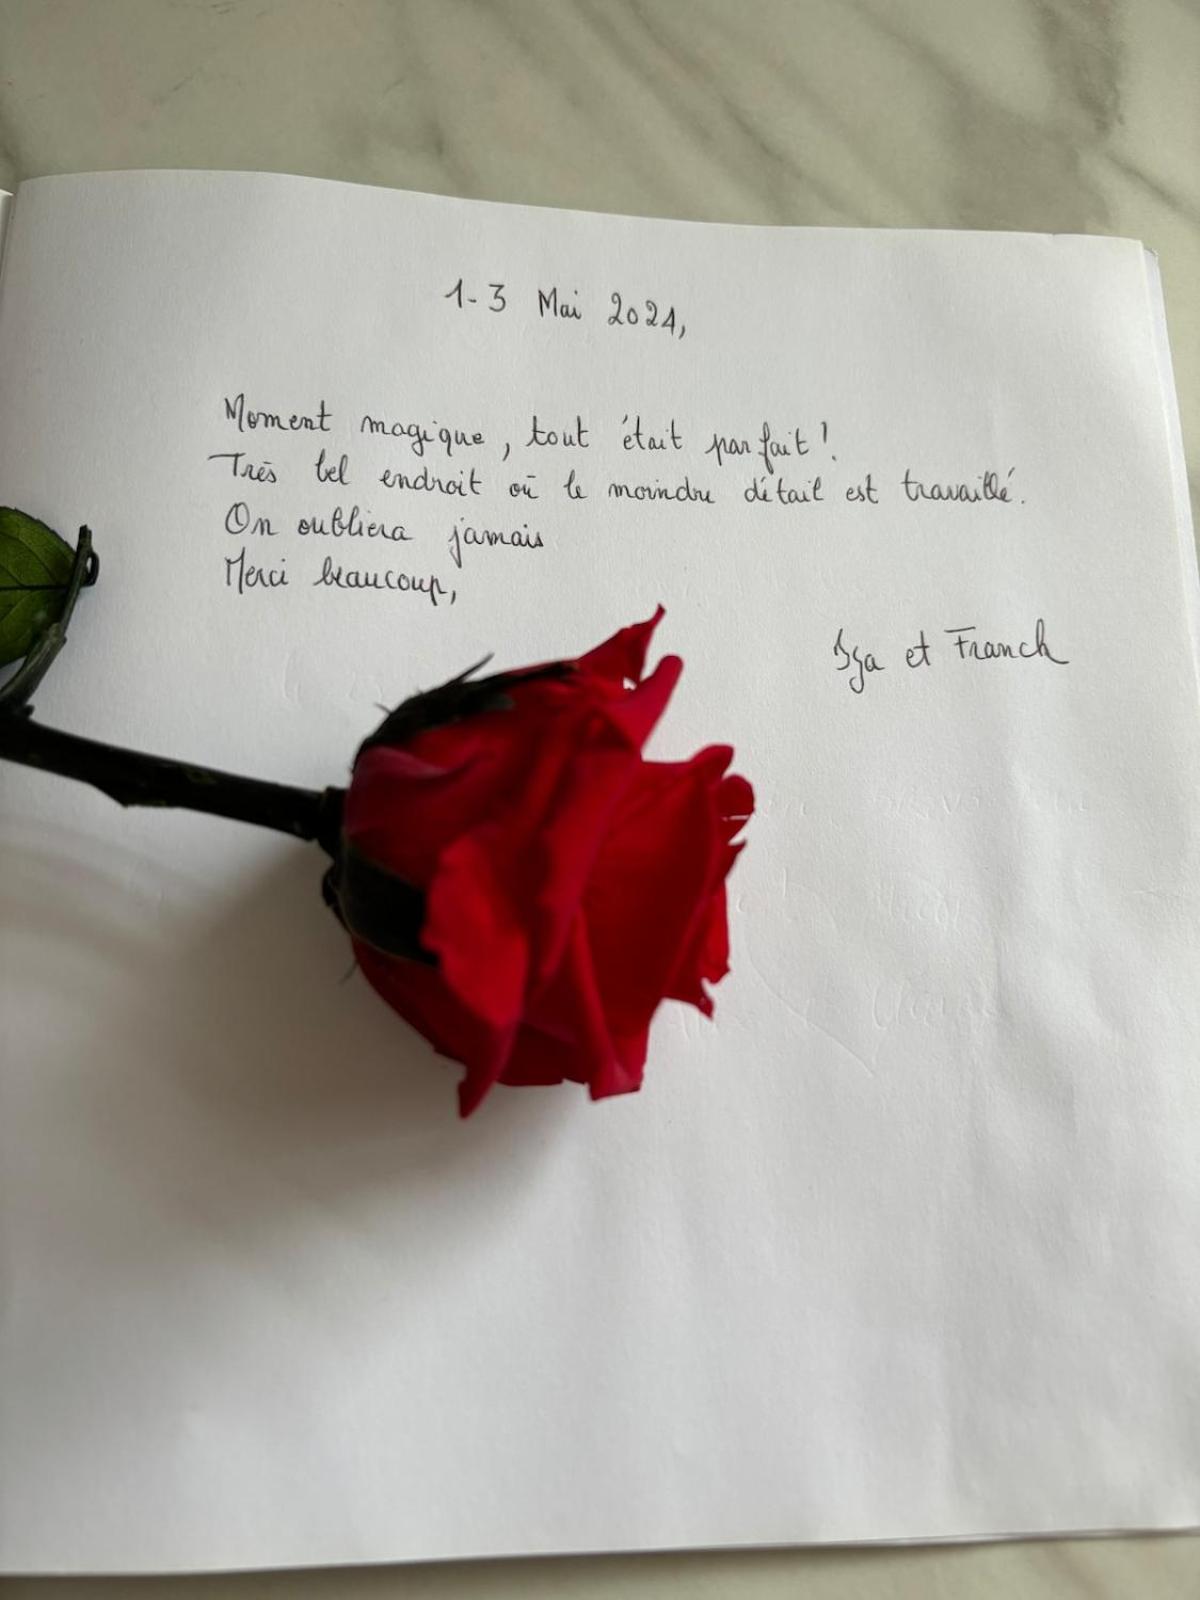 1-3 Mai 2024,
Moment magique, tout était parfait!
Très bel endroit où le moindre détail est travaillé.
On oubliera jamais
Merci beaucoup,
Isa et Franck